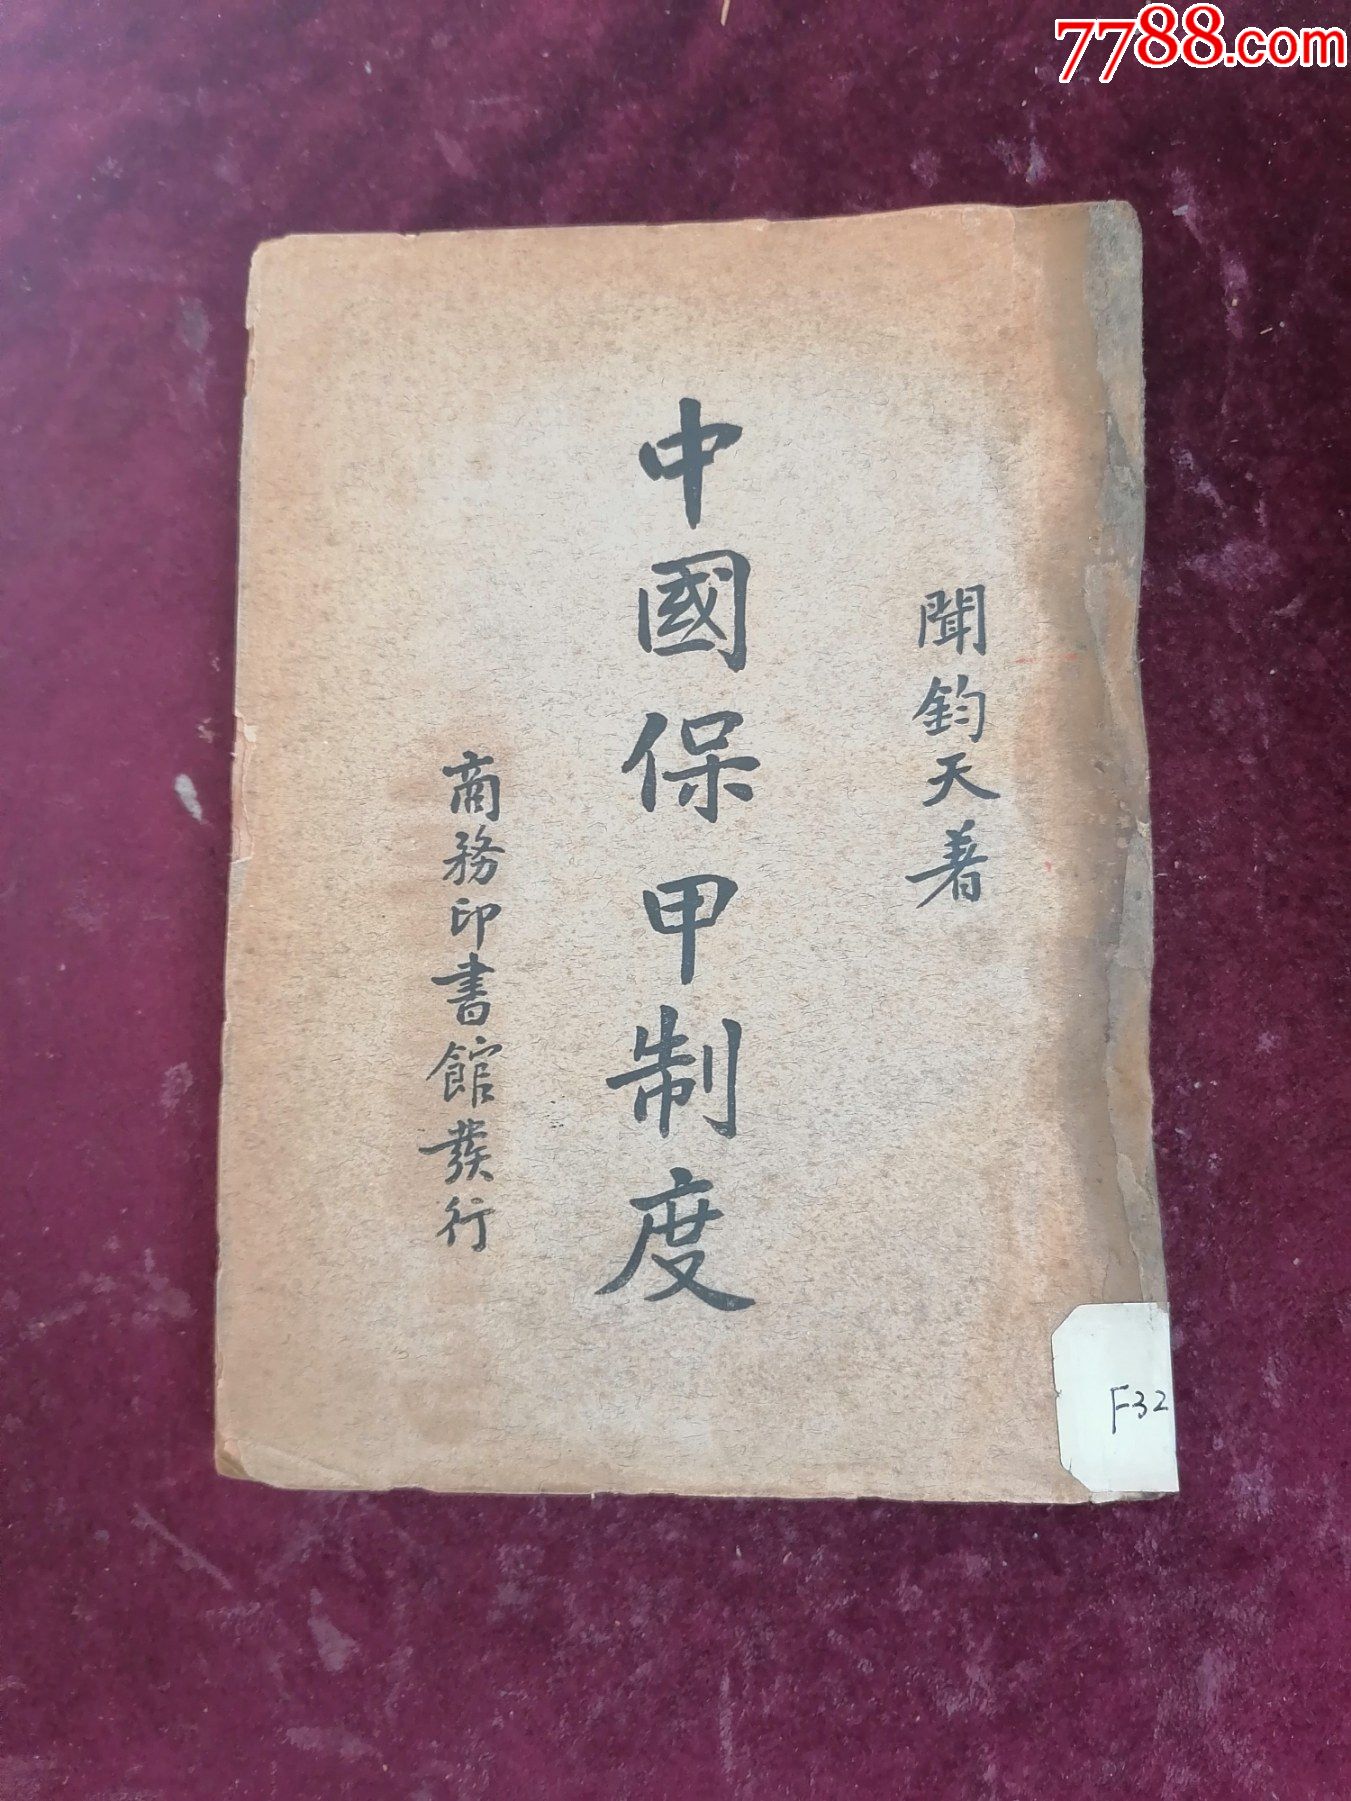 7788.com
聞鈞天著
中國保甲制度
商務印書館發行
F32